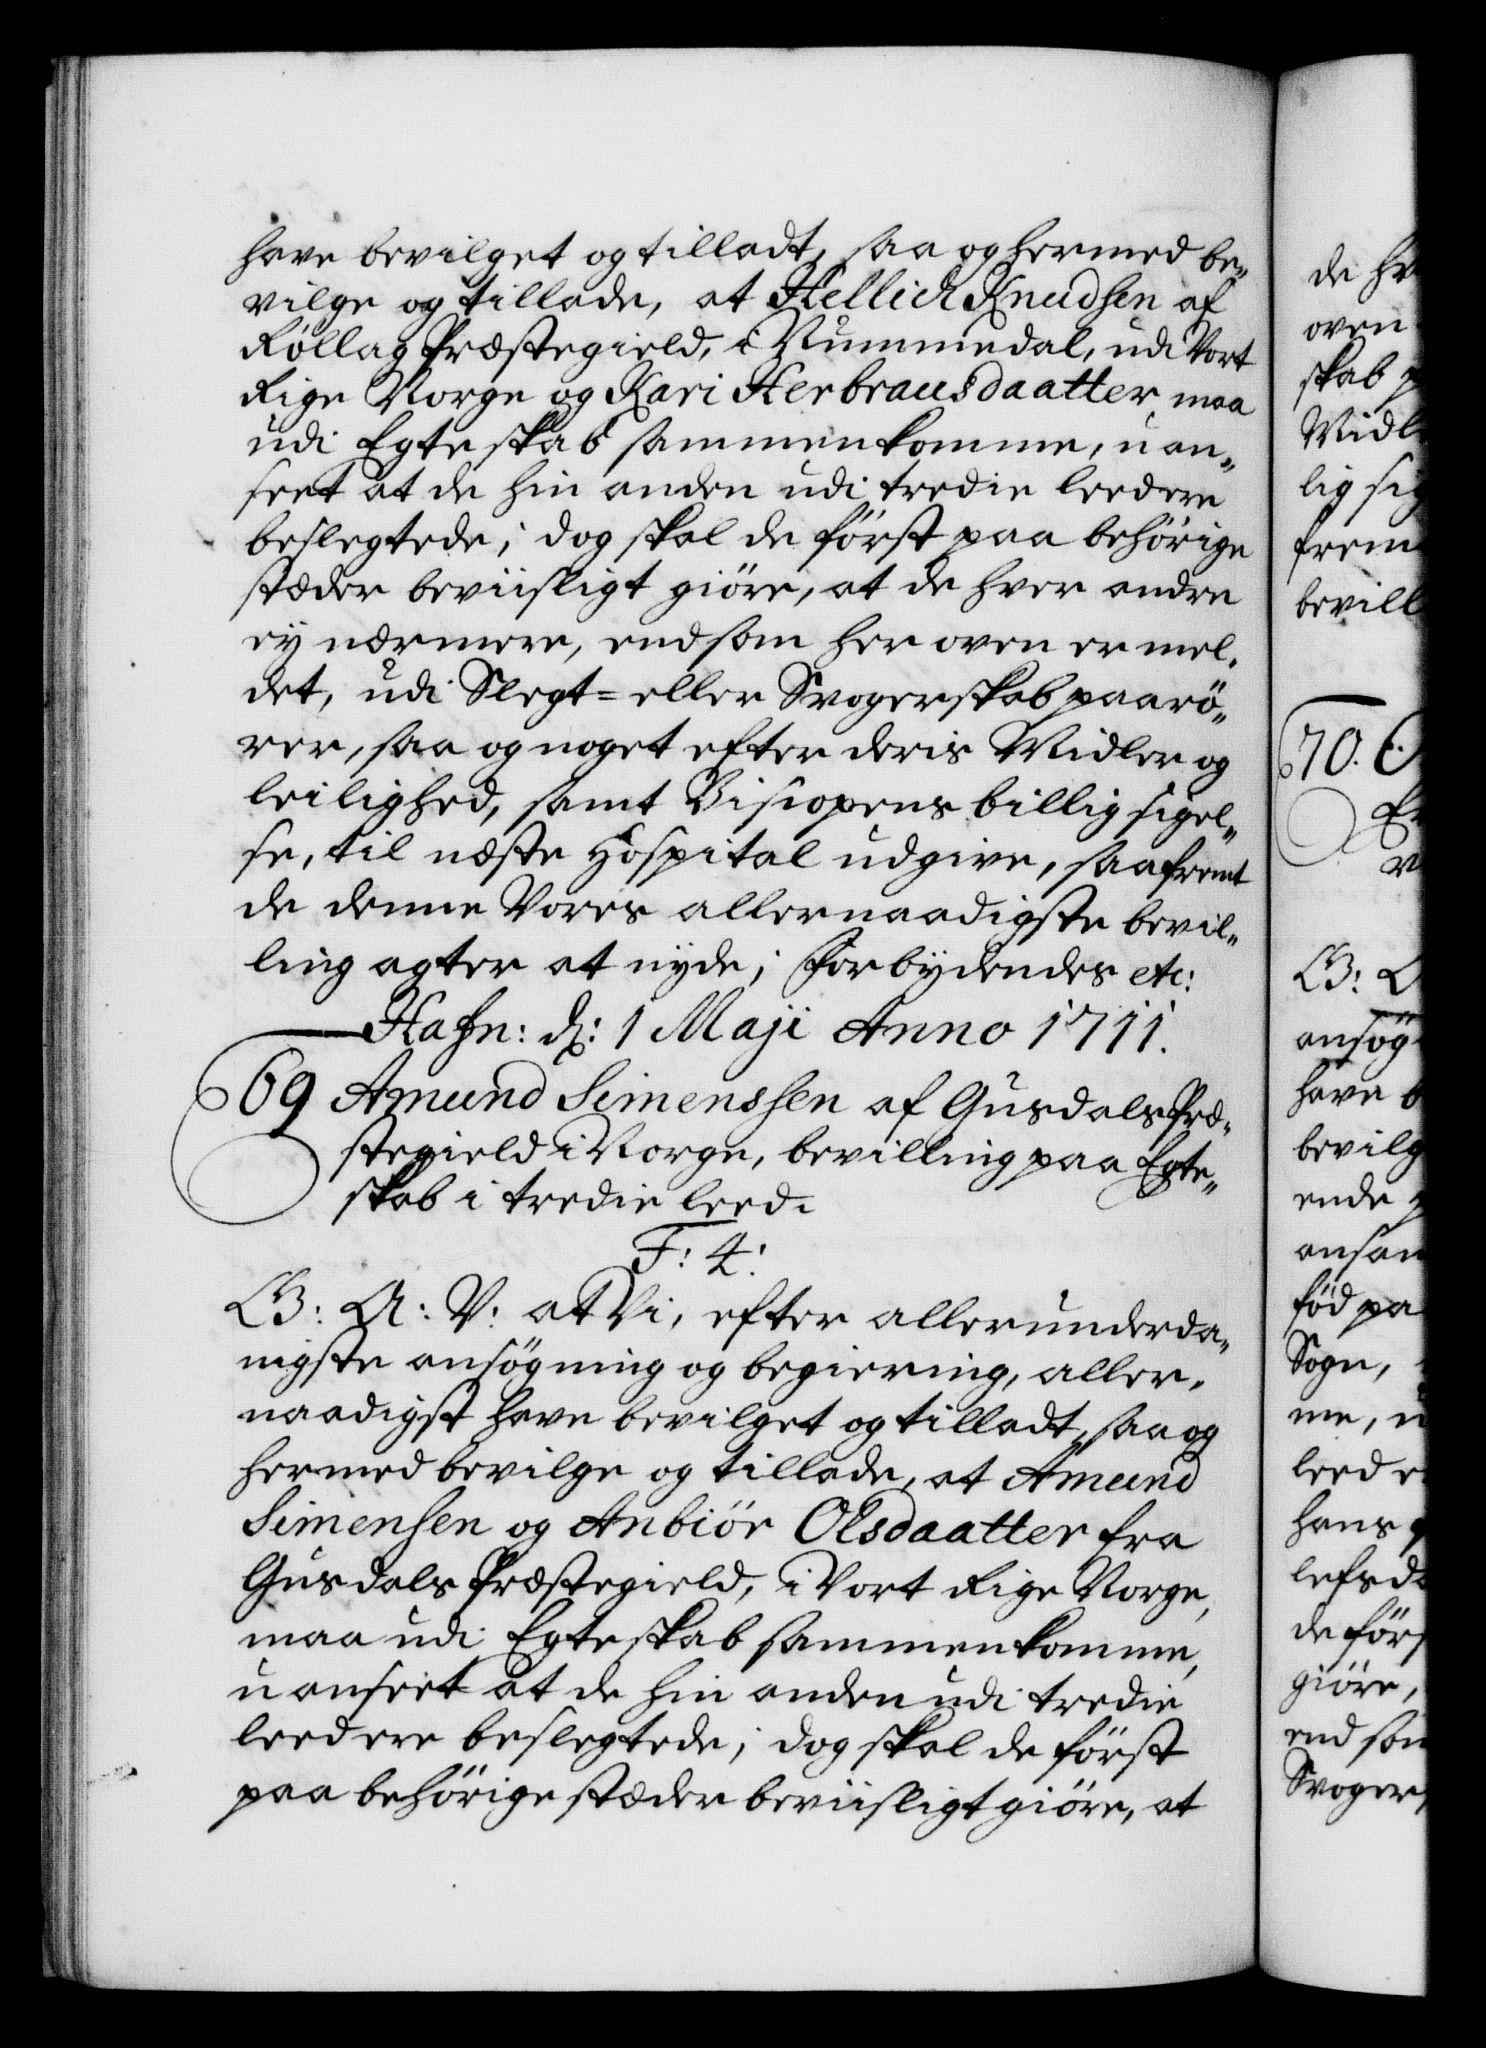 have bevilget og tilladt, saa og hermed be„
vilge og tillade, at Hellich Knudsen af
Røllag Præstegield, i Nummedal, udi Vort
Rige Norge og Kari Herbrandsdaatter maa
udi Egteskab sammenkomme, uan„
seet at de hin anden udi tredie leed ere
beslegtede; dog skal de först paa behörige
stæder beviisligt giöre, at de hver andre
ey nærmere, end som her oven er mel„
det, udi Slegt= eller Svogerskab paarö„
rer, saa og noget efter deris Midler og
leilighed, samt Biscopens billig sigel„
se, til næste Hospital udgive, saafremt
de denne Vores allernaadigste bevil„
ling agter at nyde; Forbydendes etc:
Hafn: d: 1 Maji Anno 1711.
69 Amund Simenssen af Gusdals Præ„
stegield i Norge, bevilling paa Egte„
skab i tredie leed.
F: 4:
G: A: V: at Vi, efter allerunderda„
nigste ansögning og begiering, aller„
naadigst have bevilget og tilladt, saa og
hermed bevilge og tillade, at Amund
Simensen og Anbiör Olsdaatter fra
Gusdals Præstegield, i Vort Rige Norge,
maa udi Egteskab sammenkomme,
uanseet at de hin anden udi tredie
leed ere beslegtede; dog skal de först
paa behörige stæder beviisligt giöre, at
de
oven
skab
lig
bevill
70.
ansög
have b
bevilg
ende
ansan
föd pa
Sogn,
me, u
leed e
hans
de förs
giöre,
end som
Svoger